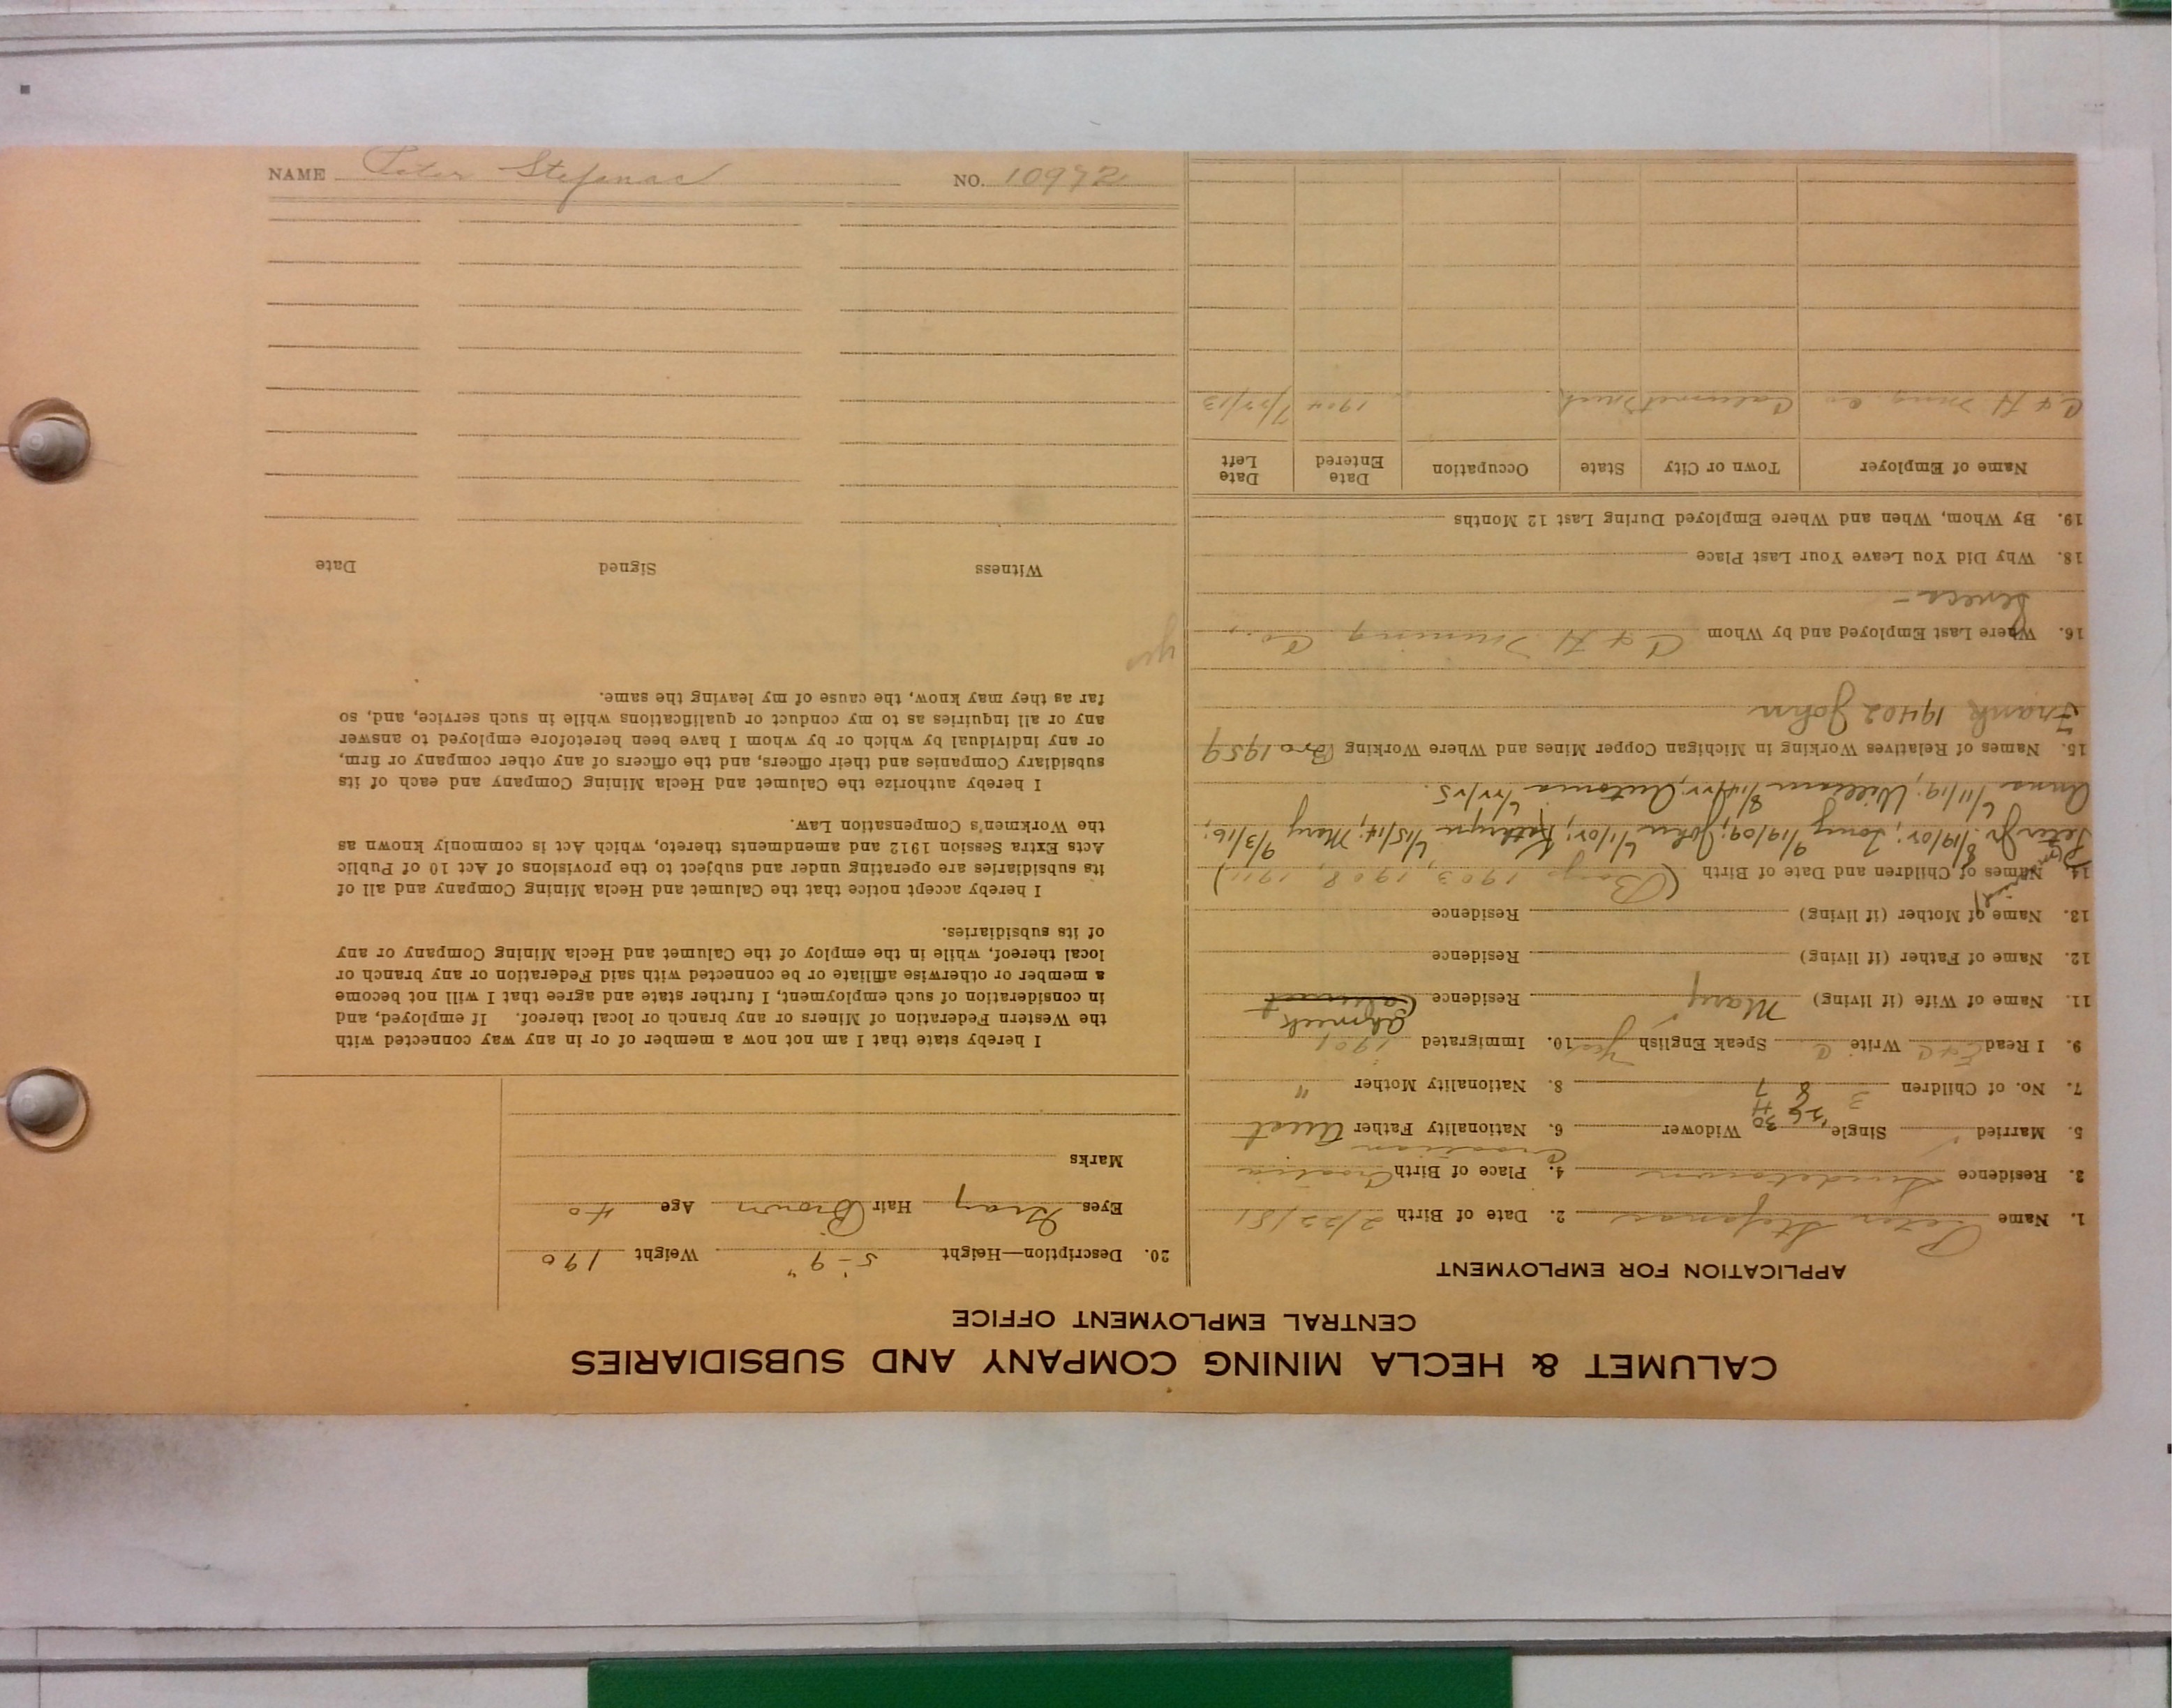 CALUMET & HECLA MINING COMPANY AND SUBSIDIARIES
CENTRAL EMPLOYMENT OFFICE
APPLICATION FOR EMPLOYMENT
1. Name Peter Stefanac 2. Date of Birth 2/22/81
3. Residence 4. Place of Birth Croatia
Croatian
5. Married Single Widower 6. Nationality Father Aust
7. No. of Children 3 8 7 8. Nationality Mother "
9. I Read E & C Write C Speak English Yes 10. Immigrated 1901
Ahmeek
11. Name of Wife (if living) Mary Residence Calumet
12. Name of Father (if living) Residence
13. Name of Mother (if living) Residence
14. Names of Children and Date of Birth (Boys 1903, 1908, 1911)
Peter Jr. 8/19/05; Tony 9/19/09; John 6/1/05; Kathryn 6/15/14; Mary 9/3/16;
Anna 6/11/19; William 8/14/22; Antonia 6/22/25.
15. Names of Relatives Working in Michigan Copper Mines and Where Working Bro 1959
Frank 19402 John
16. Where Last Employed and by Whom C & H Mining Co.,
Seneca -
18. Why Did You Leave Your Last Place
19. By Whom, When and Where Employed During Last 12 Months
Name of Employer Town or City State Occupation Date Entered Date Left
C & H Mng Co Calumet Mich 1904 7/23/13
20. Description—Height 5'-9" Weight 190
Eyes Gray Hair Brown Age 40
Marks
I hereby state that I am not now a member of or in any way connected with
the Western Federation of Miners or any branch or local thereof. If employed, and
in consideration of such employment, I further state and agree that I will not become
a member or otherwise affiliate or be connected with said Federation or any branch or
local thereof, while in the employ of the Calumet and Hecla Mining Company or any
of its subsidiaries.
I hereby accept notice that the Calumet and Hecla Mining Company and all of
its subsidiaries are operating under and subject to the provisions of Act 10 of Public
Acts Extra Session 1912 and amendments thereto, which Act is commonly known as
the Workmen's Compensation Law.
I hereby authorize the Calumet and Hecla Mining Company and each of its
subsidiary Companies and their officers, and the officers of any other company or firm,
or any individual by which or by whom I have been heretofore employed to answer
any or all inquiries as to my conduct or qualifications while in such service, and, so
far as they may know, the cause of my leaving the same.
Witness Signed Date
NAME Peter Stefanac NO. 10972